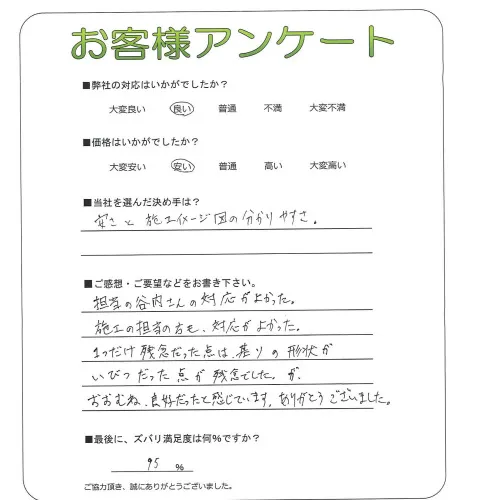 お客様アンケート
■弊社の対応はいかがでしたか?
大変良い 良い 普通 不満 大変不満
■価格はいかがでしたか?
大変安い 安い 普通 高い 大変高い
■当社を選んだ決め手は?
安さと施工イメージ図の分かりやすさ。
■ご感想・ご要望などをお書き下さい。
担当の谷内さんの対応がよかった。
施工の担当の方も、対応がよかった。
1つだけ残念だった点は、基りの形状が
いびつだった点が残念でした。が、
おおむね、良好だったと感じています。ありがとうございました。
■最後に、ズバリ満足度は何%ですか?
95 %
ご協力頂き、誠にありがとうございました。